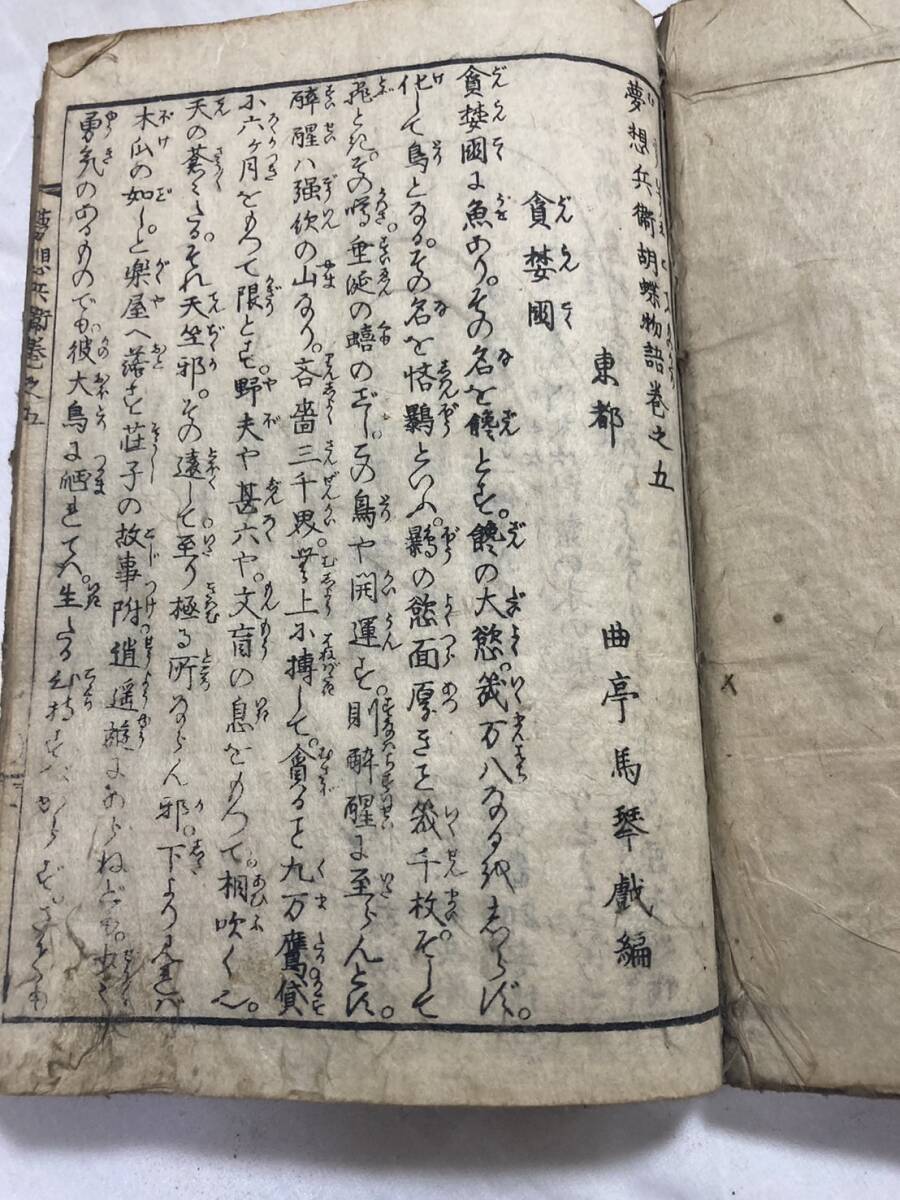 夢想兵衛胡蝶物語巻之五
東都 曲亭馬琴戯編
貪婪國
貪婪國に魚あり。その名を饞とす。饞の大慾。幾万八なるをしらず。
化して鳥となる。その名を悋鵬といふ。鵬の慾面厚きこと幾千枚。そして
飛とき。その噂垂涎の蟢のごとし。この鳥や開運す。則酔醒に至らんとす。
酔醒ハ強飲の山なり。吝嗇三千界。無上に摶して。貪ること九万鷹貸
に六ヶ月をもつて限とす。野夫や甚六や。文盲の息をもつて相吹く也。
天の蒼々たる。それ天竺邪。その遠して至り極る所ならん邪。下より見れば
木瓜の如しと楽屋へ落す荘子の故事附逍遥遊にあらねども。
勇気のあるものでも。彼大鳥に
夢想兵衛巻之五